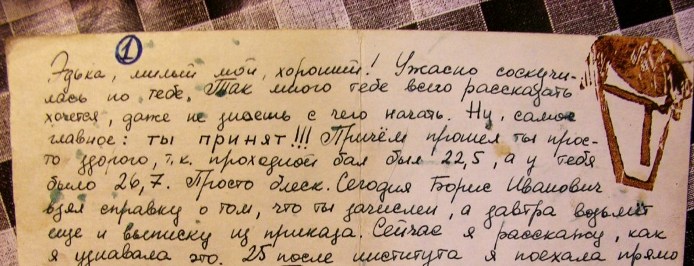 1
Эдька, милый мой, хороший! Ужасно соскучи-
лась по тебе. Так много тебе всего рассказать
хочется, даже не знаешь с чего начать. Ну, самое
главное: ты принят!!! Причём прошел ты прос-
то здорово, т.к. проходной бал был 22,5, а у тебя
было 26,7. Просто блеск. Сегодня Борис Иванович
взял справку о том, что ты зачислен, а завтра возьмёт
еще и выписку из приказа. Сейчас я расскажу, как
я узнавала это. 25 после института я поехала прямо